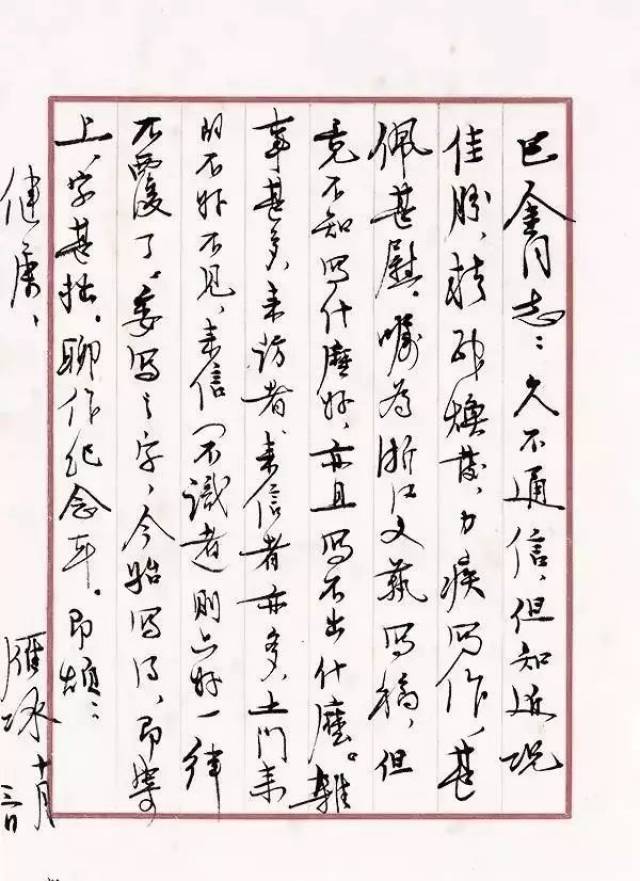 巴金同志：久不通信，但知近况
佳胜，精神焕發，力疾写作，甚
佩甚慰。嘱为浙江文藝写稿，但
竟不知写什麽好，亦且写不出什麽。雜
事甚多，来访者、来信者亦多，上门来
的不好不见，来信（不識者）则只好一律
不覆了。委写之字，今始写得，即寄
上，字甚拙。聊作纪念耳。即頌：
健康，
雁冰 十月
三日